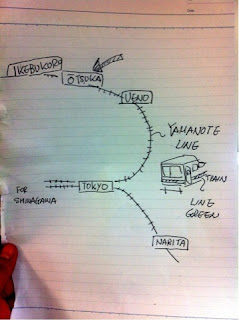 IKEBUKURO
ŌTSUKA
UENO
YAMANOTE
LINE
TRAIN
FOR
SHINAGAWA
TOKYO
LINE
GREEN
NARITA